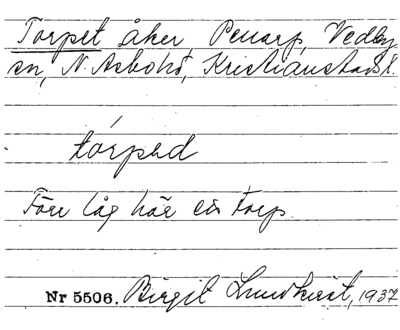 Torpet åker, Penarp, Vedby
sn, N. Åsbo hd, Kristianstads l.
tórpəd
Förr låg här ett torp.
Nr 5506. Birgit Lundkvist, 1937